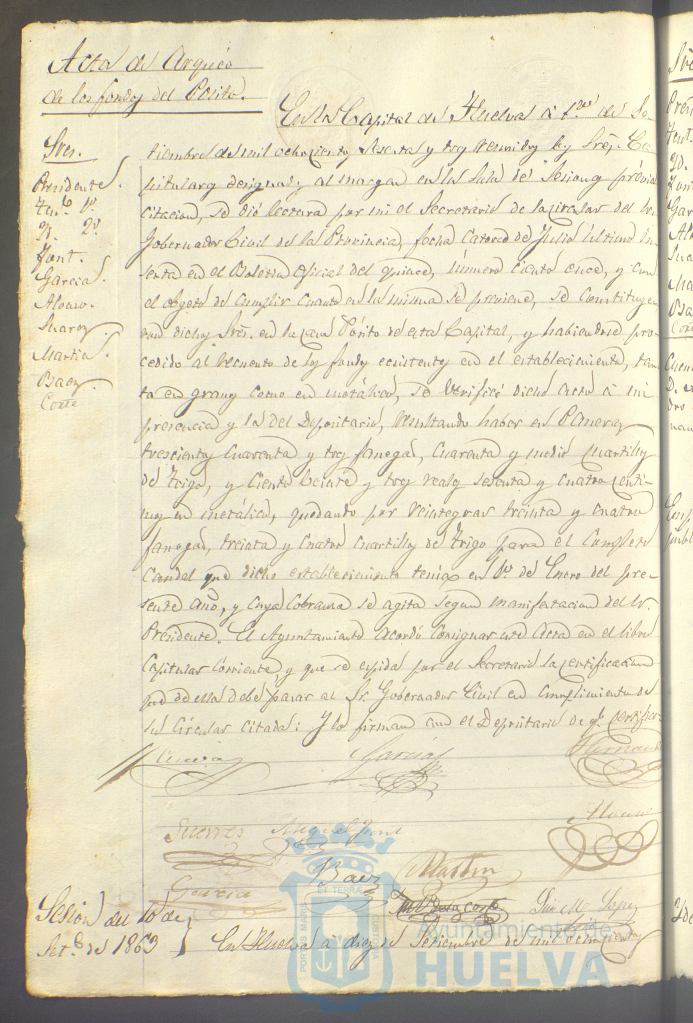 Acta de Arqueo
de los fondos del Pósito.
Sres.
Presidente.
Ten.e 1.º
Yd. 2.º
Font.
Garcia.
Alonso.
Suarez
Martin.
Baez.
Corte
En la Capital de Huelva á 1.º de Se-
tiembre de mil ochocientos sesenta y tres reunidos los Sres. Ca-
pitulares designados al margen en la Sala de Sesiones, prévia
citacion, se dió lectura por mi el Secretario de la circular del Sr.
Gobernador Civil de la Provincia, fecha catorce de Julio último in-
serta en el Boletin oficial del quince, número ciento once, y con
el objeto de cumplir cuanto en la misma se previene, se constituye-
ron dichos Sres. en la casa Pósito de esta Capital, y habiendose pro-
cedido al recuento de los fondos ecsistentes en el establecimiento, tan-
to en granos como en metálico, se verificó dicho acto á mi
presencia y la del Depositario, resultando haber en Paneras
trescientas cuarenta y tres fanegas, cuarenta y medio cuartillos
de trigo, y ciento veinte y tres reales sesenta y cuatro centi-
mos en metálico, quedando por reintegrar treinta y cuatro
fanegas, treinta y cuatro cuartillos de trigo para el completo
Caudal que dicho establecimiento tenia en 1.º de Enero del pre-
sente año, y cuya cobranza se agita segun manifestacion del Sr.
Presidente. El Ayuntamiento acordó consignar este acta en el libro
Capitular corriente, y que se espida por el Secretario la certificacion
que de ella debe pasar al Sr. Gobernador Civil en cumplimiento de
su Circular citada: Y lo firman con el Depositario de q.e certifico
Garcia
Hernandez
Suarez Miguel Font Alonso
Baez Martin
Garcia Luis M. Lopez
Sesion del 10 de
Set.e de 1863
En Huelva á diez de Setiembre de mil ochocientos
PORTUS MARIS ET TERRAE CUSTODIA
Ayuntamiento de
HUELVA